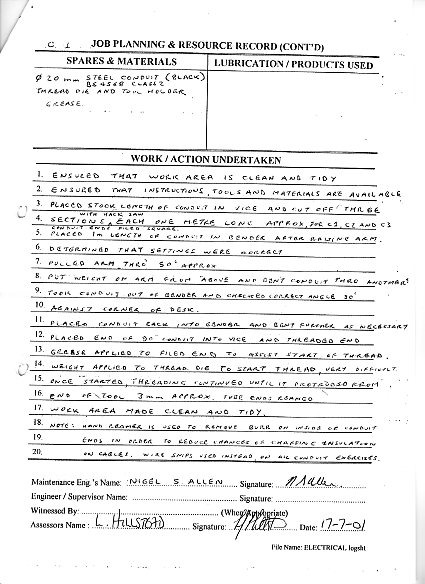 C. 1 JOB PLANNING & RESOURCE RECORD (CONT'D)
SPARES & MATERIALS
LUBRICATION / PRODUCTS USED
Ø 20 mm STEEL CONDUIT (BLACK)
BS 4568 CLASS 2
THREAD DIE AND TOOL HOLDER
GREASE.
WORK / ACTION UNDERTAKEN
1. ENSURED THAT WORK AREA IS CLEAN AND TIDY
2. ENSURED THAT INSTRUCTIONS, TOOLS AND MATERIALS ARE AVAILABLE
3. PLACED STOCK LENGTH OF CONDUIT IN VICE AND CUT OFF THREE
WITH HACK SAW
4. SECTIONS, EACH ONE METRE LONG APPROX, FOR C3, C2 AND C3
CONDUIT ENDS FILED SQUARE.
5. PLACED 1m LENGTH OF CONDUIT IN BENDER AFTER RAISING ARM.
6. DETERMINED THAT SETTINGS WERE CORRECT
7. PULLED ARM THRO' 50° APPROX
8. PUT WEIGHT ON ARM FROM ABOVE AND BENT CONDUIT THRO ANOTHER
9. TOOK CONDUIT OUT OF BENDER AND CHECKED CORRECT ANGLE 90°
10. AGAINST CORNER OF DESK.
11. PLACED CONDUIT BACK INTO BENDER AND BENT FURTHER AS NECESSARY
12. PLACED END OF 90° CONDUIT INTO VICE AND THREADED END
13. GREASE APPLIED TO FILED END TO ASSIST START OF THREAD.
14. WEIGHT APPLIED TO THREAD DIE TO START THREAD, VERY DIFFICULT
15. ONCE STARTED, THREADING CONTINUED UNTIL IT PROTRUDED FROM
16. END OF TOOL 3mm APPROX. TUBE ENDS REAMED
17. WORK AREA MADE CLEAN AND TIDY.
18. NOTE: HAND REAMER IS USED TO REMOVE BURR ON INSIDE OF CONDUIT
19. ENDS IN ORDER TO REDUCE CHANCES OF CHAFFING INSULATION
20. ON CABLES. WIRE SNIPS USED INSTEAD ON ALL CONDUIT EXERCISES.
Maintenance Eng.'s Name: NIGEL S. ALLEN Signature: N S Allen
Engineer / Supervisor Name: Signature:
Witnessed By: (When Appropriate)
Assessors Name: L. HILLSTEAD Signature: Date: 17-7-01
File Name: ELECTRICAL logsht